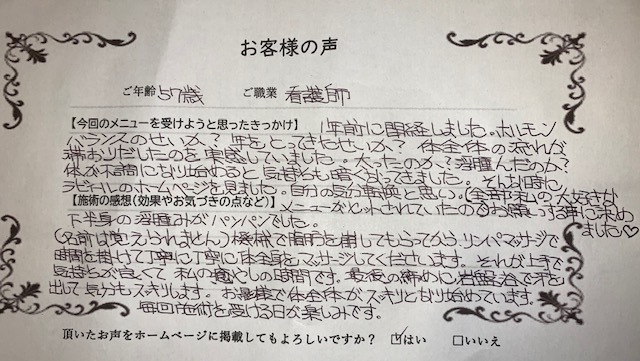 お客様の声
ご年齢 57歳 ご職業 看護師
【今回のメニューを受けようと思ったきっかけ】 1年前に閉経しました。ホルモン
バランスのせいか？年をとってきたせいか？体全体の流れが
滞おりだしたのを実感していました。太ったのか？浮腫んだのか？
体が不調になり始めると気持ちも暗くなってきました。そんな時に
ラビドールのホームページを見ました。自分の気分転換と思い。(全部私の大好きな
【施術の感想(効果やお気づきの点など)】 メニューがセットされていたのでお願いする事に決め
ました♡
下半身の浮腫みがパンパンでした。
(名前は覚えられません)機械で脂肪を崩してもらってからリンパマッサージで
時間を掛けて丁寧に丁寧に体全身をマッサージしてくださいます。それが上手で
気持ちが良くて私の癒やしの時間です。最後の締めに岩盤浴で汗を
出して気分もスッキリします。お陰様で体全体がスッキリとなり始めています。
毎回施術を受ける日が楽しみです。
頂いたお声をホームページに掲載してもよろしいですか？ ☑はい □いいえ